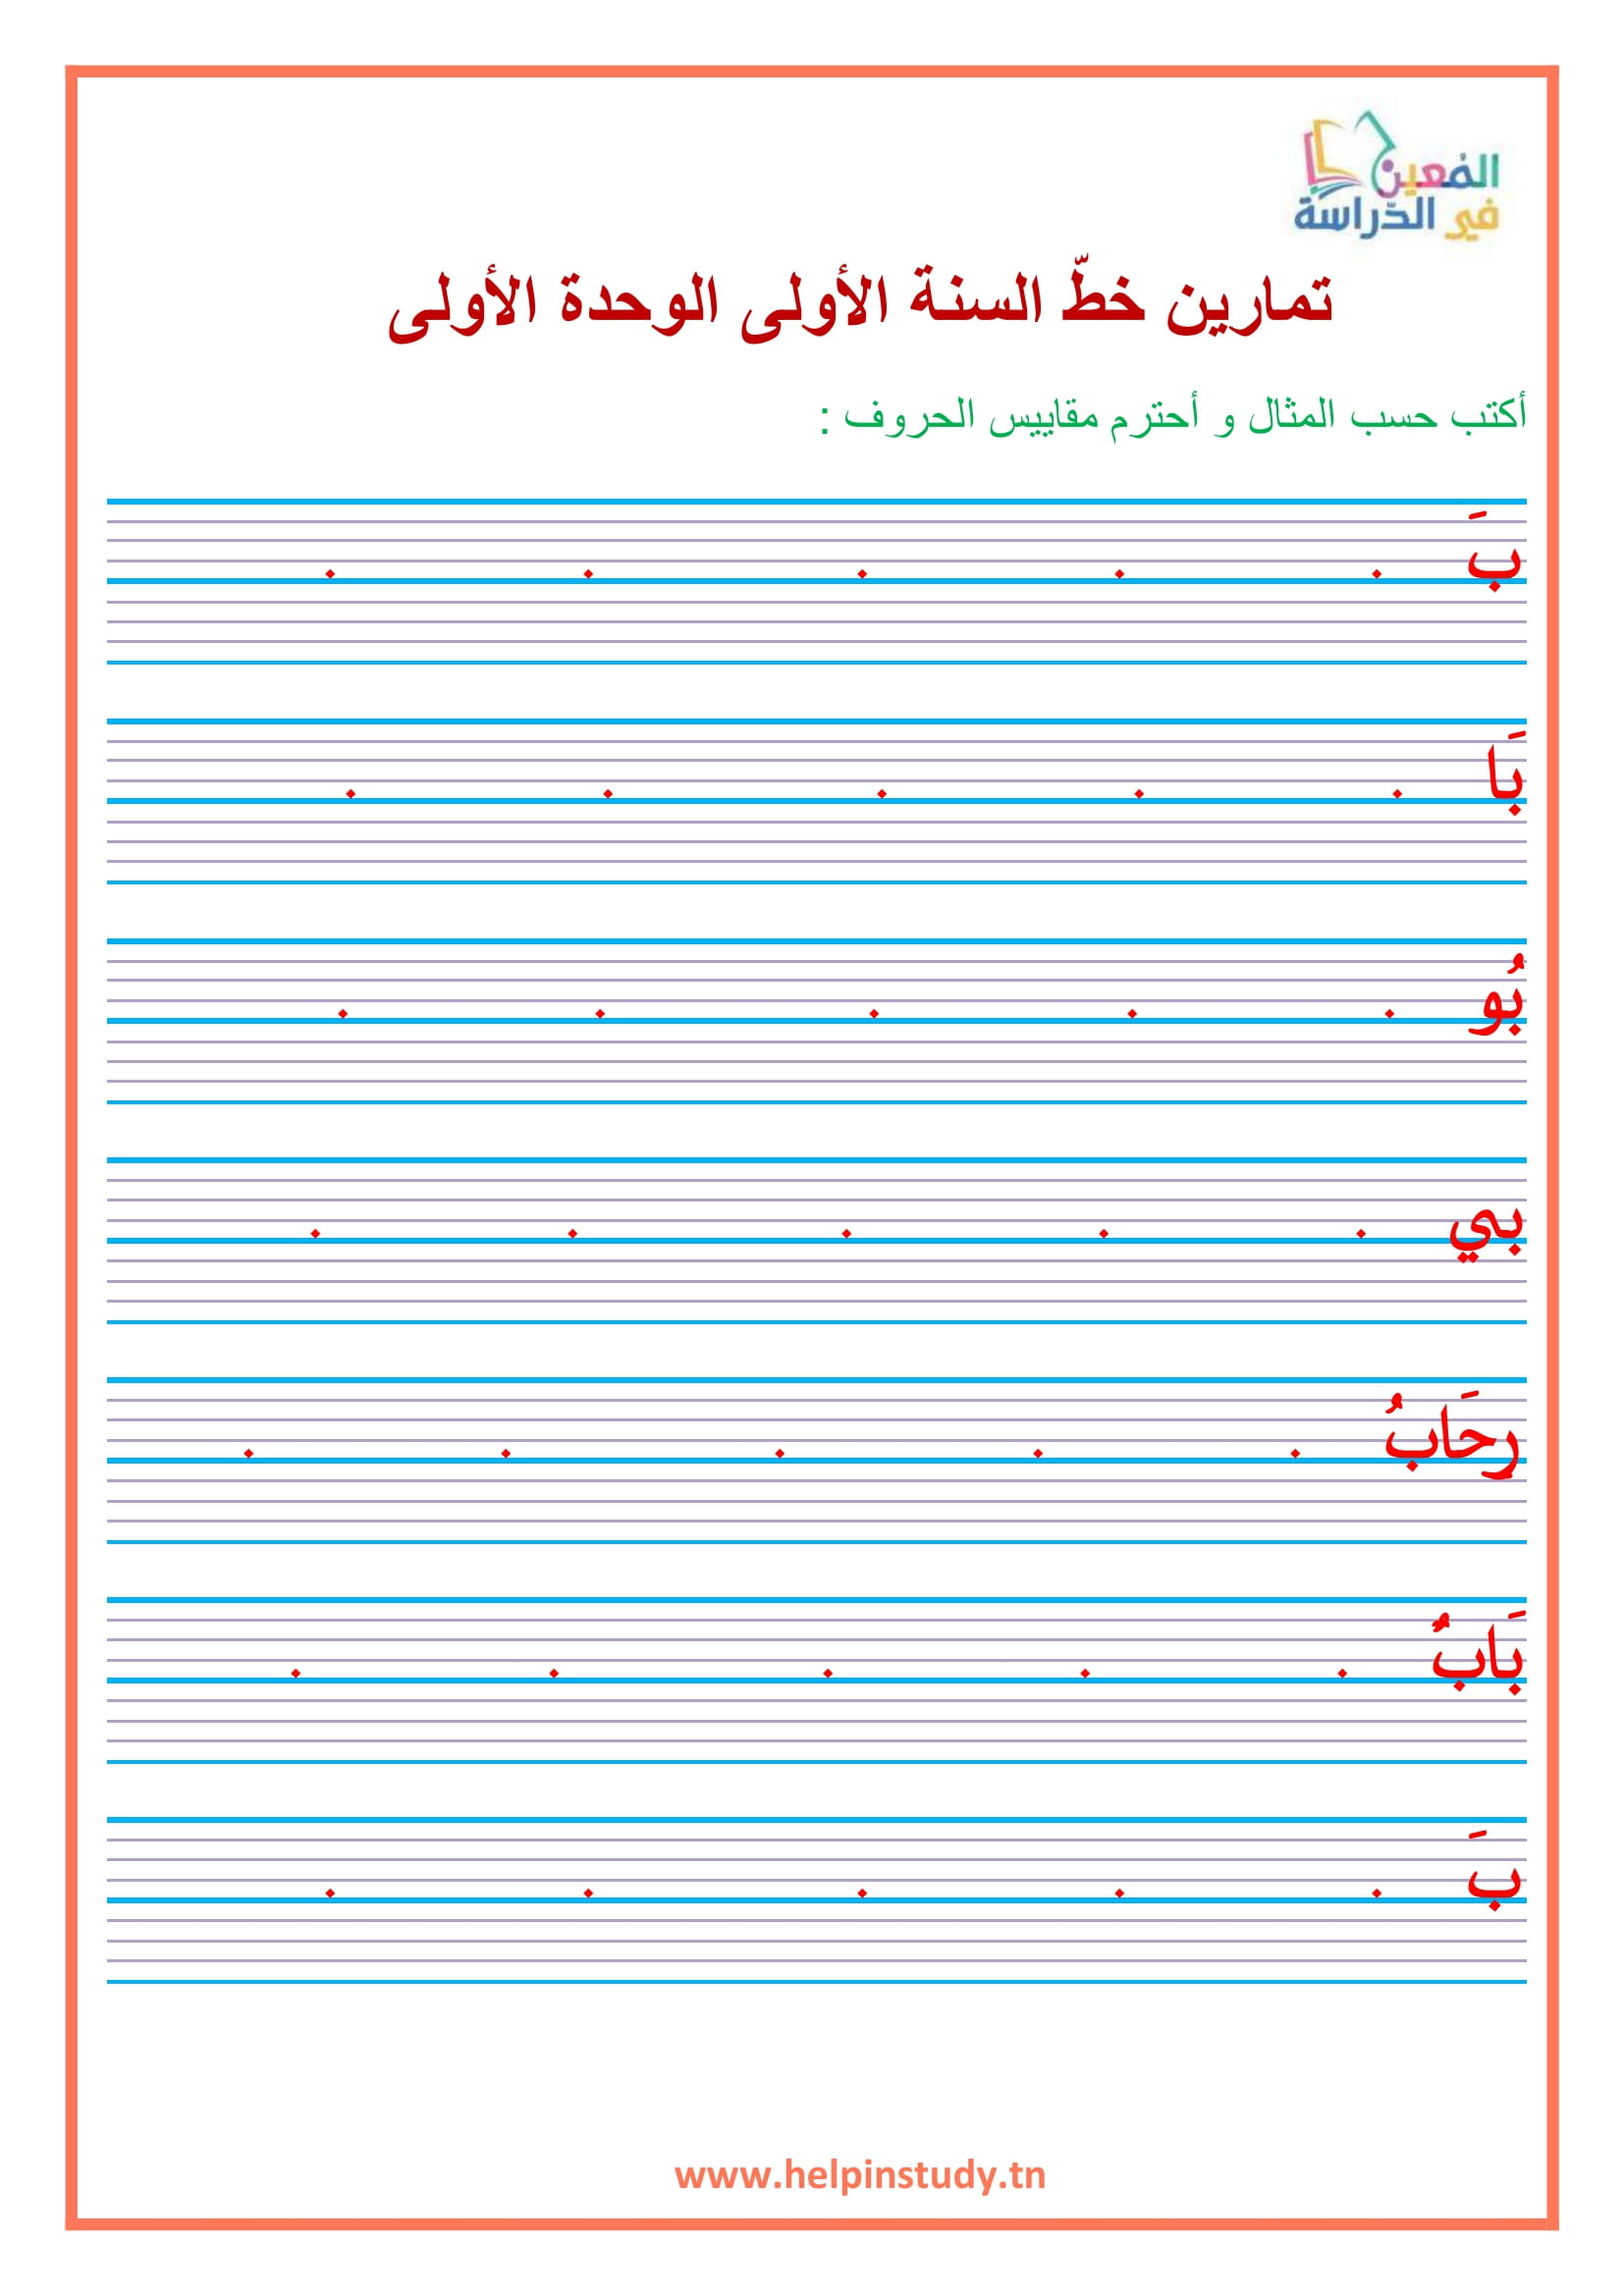 المُعين
في الدّراسة
تمارين خطّ السنة الأولى الوحدة الأولى
أكتب حسب المثال و أحترم مقاييس الحروف :
بَ . . . . .
بَا . . . . .
بُو . . . . .
بي . . . . .
رِحَابُ . . . . .
بَابٌ . . . . .
بَ . . . . .
www.helpinstudy.tn